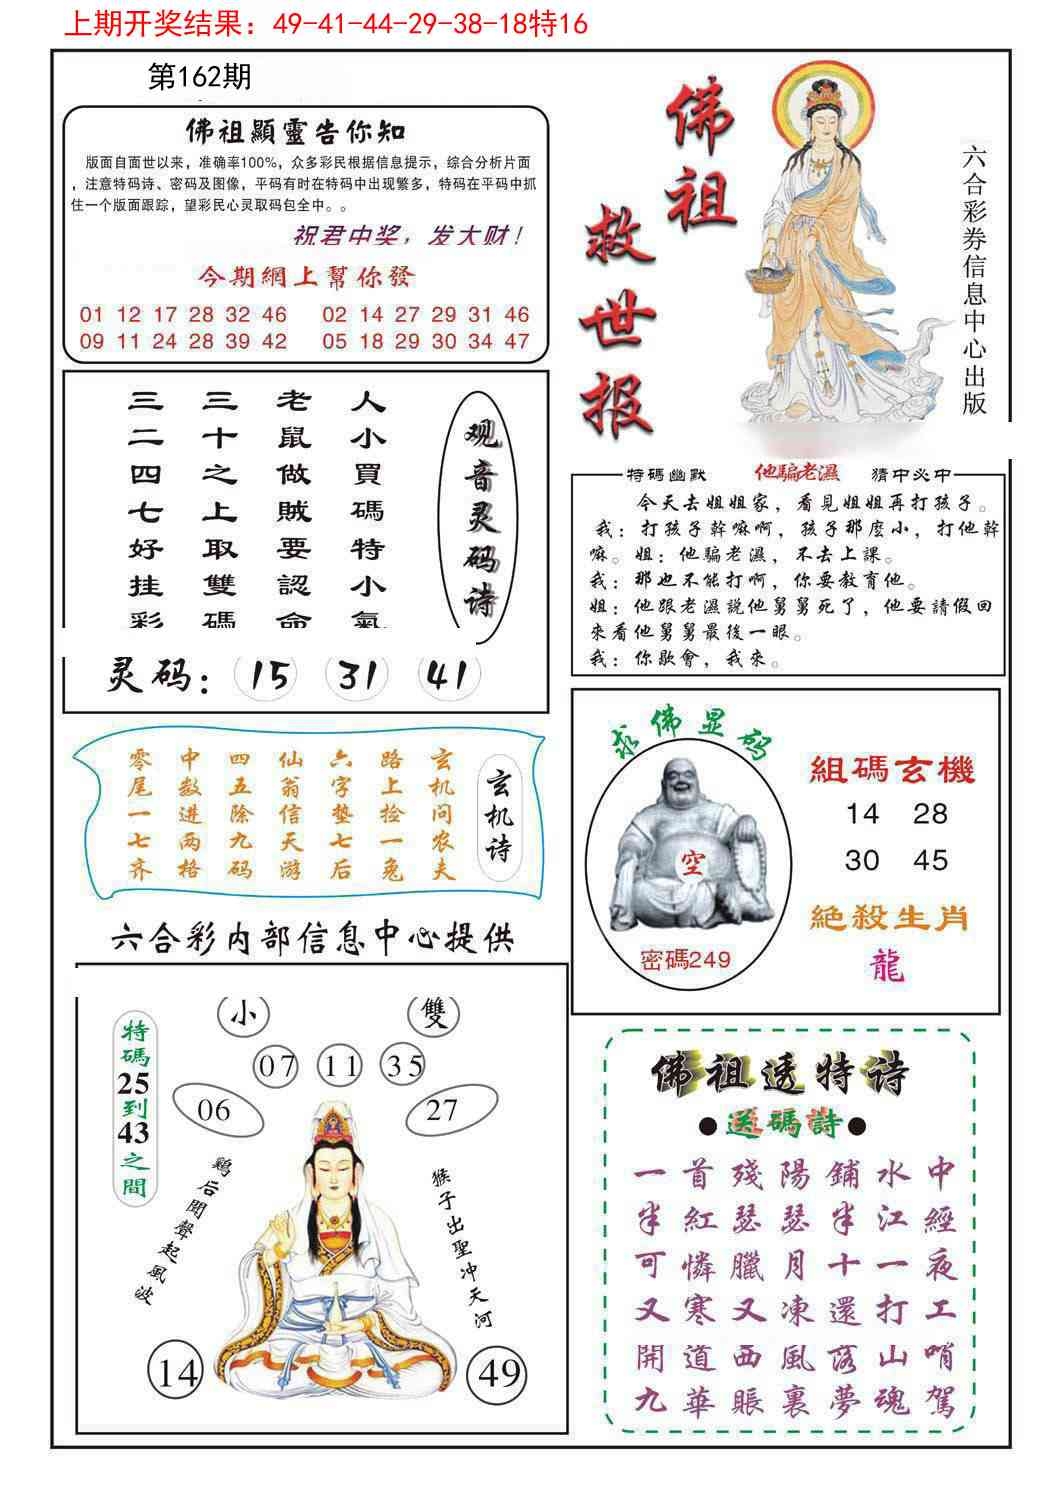 上期开奖结果：49-41-44-29-38-18特16
第162期
佛祖顯靈告你知
版面自面世以来，准确率100%，众多彩民根据信息提示，综合分析片面
，注意特码诗、密码及图像，平码有时在特码中出现繁多，特码在平码中抓
住一个版面跟踪，望彩民心灵取码包全中。。
祝君中奖，发大财！
今期網上幫你發
01 12 17 28 32 46 02 14 27 29 31 46
09 11 24 28 39 42 05 18 29 30 34 47
佛祖
救世报
六合彩券信息中心出版
观音灵码诗
人小買碼特小氣
老鼠做賊要認命
三十之上取雙碼
三二四七好挂彩
灵码：15 31 41
特碼幽默 他騙老濕 猜中必中
今天去姐姐家，看見姐姐再打孩子。
我：打孩子幹嘛啊，孩子那麼小，打他幹
嘛。姐：他騙老濕，不去上課。
我：那也不能打啊，你要教育他。
姐：他跟老濕説他舅舅死了，他要請假回
來看他舅舅最後一眼。
我：你歇會，我來。
玄机诗
玄机问农夫
路上捡一兔
六字垫七后
仙翁信天游
四五除九码
中数进两格
零尾一七齐
求佛显码
空
密碼249
組碼玄機
14 28
30 45
絕殺生肖
龍
六合彩内部信息中心提供
特碼25到43之間
小 雙
07 11 35
06 27
鷄后聞聲起風波
猴子出聖冲天河
14 49
佛祖透特诗
●送碼詩●
一首殘陽鋪水中
半紅瑟瑟半江經
可憐臘月十一夜
又寒又凍還打工
開道西風落山哨
九華賬裏夢魂駕